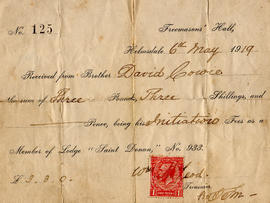 Freemasons' Hall,
No. 125
Helmsdale 6th May 1919
Received from Brother David Cowie
the sum of Three Pounds, Three Shillings, and
Pence, being his Initiation Fees as a
Member of Lodge "Saint Donan," No. 933.
£3.3.0.
Treasurer